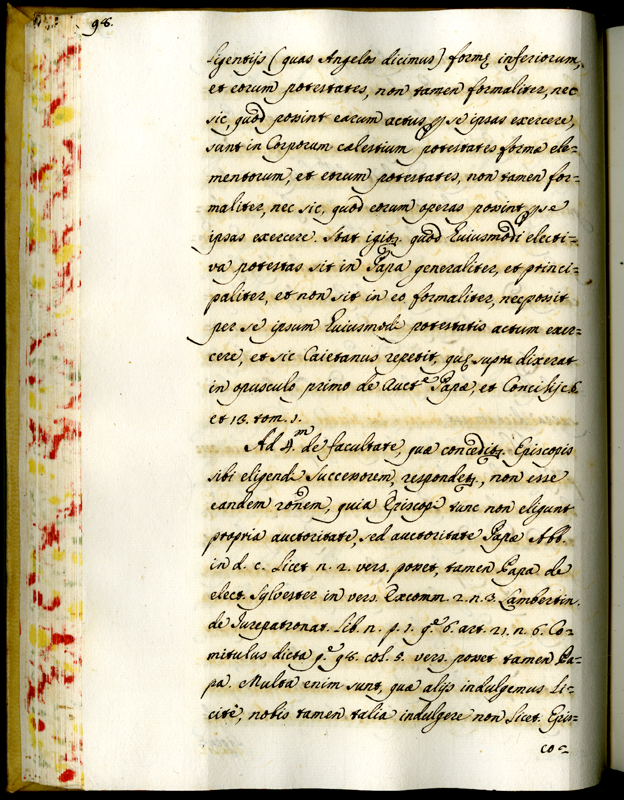 98.
ligentijs (quas Angelos dicimus) formę inferiorum,
et eorum potestates, non tamen formaliter, nec
sic, quòd possint earum actus ꝑ se ipsas exercere,
sunt in Corporum cælestium potestates forma ele-
mentorum, et eorum potestates, non tamen for-
maliter, nec sic, quod eorum operas possint ꝑ se
ipsas exercere. Stat igitꝛ. quod huiusmodi electi-
va potestas sit in Papa generaliter, et princi-
paliter, et non sit in eo formaliter, nec possit
per se ipsum huiusmodi potestatis actum exer-
cere, et sic Caietanus repetit, quę supra dixerat
in opusculo primo de Auctᵉ Papæ, et Concilij c. 6.
et 13. tom. 1.
Ad 4.ᵐ de facultate, quæ conceditꝛ. Episcopis
sibi eligendi successorem, respondetꝛ., non esse
eandem rōnem, quia Episcopi tunc non eligunt
propria auctoritate, sed auctoritate Papæ Abb.
in d. c. Licet n. 2. vers. posset, tamen Papa de
elect. Sylvester in vers. Excomm. 2. n. 3. Lambertin.
de Iurepatronat. lib. n. p. 1. q.ᵉ 6. art. 21. n. 6. Co-
mitulus dicta q.ᵉ 98. col. 5. vers. posset tamen Pa-
pa. Multa enim sunt, quæ alijs indulgemus li-
citè, nobis tamen talia indulgere non licet. Epis-
co-